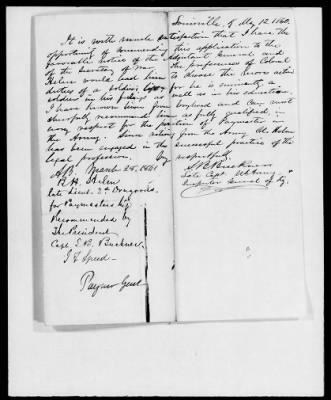 Louisville, Ky May 12. 1860.
It is with much satisfaction that I have the
opportunity of commending this application to the
favorable notice of the Adjutant General and
of the Secretary of War. The preferences of Colonel
Helm would lead him to choose the more active
duties of a soldier's life; for he is eminently a
soldier in his feelings as well as in his education.
I have known him from boyhood and can most
cheerfully recommend him as fully qualified, in
every respect for the position of Paymaster in
the Army. Since retiring from the Army Col Helm
has been engaged in the successful practice of the
legal profession.
respectfully
S B Buckner
Late Capt U.S. Army
Inspector General of Ky.
March 28, 1861
B. H. Helm
late Lieut. 2d Dragoons
for Paymastership
Recommended by
The President
Capt S. B. Buckner
J F Speed
Paymr Genl